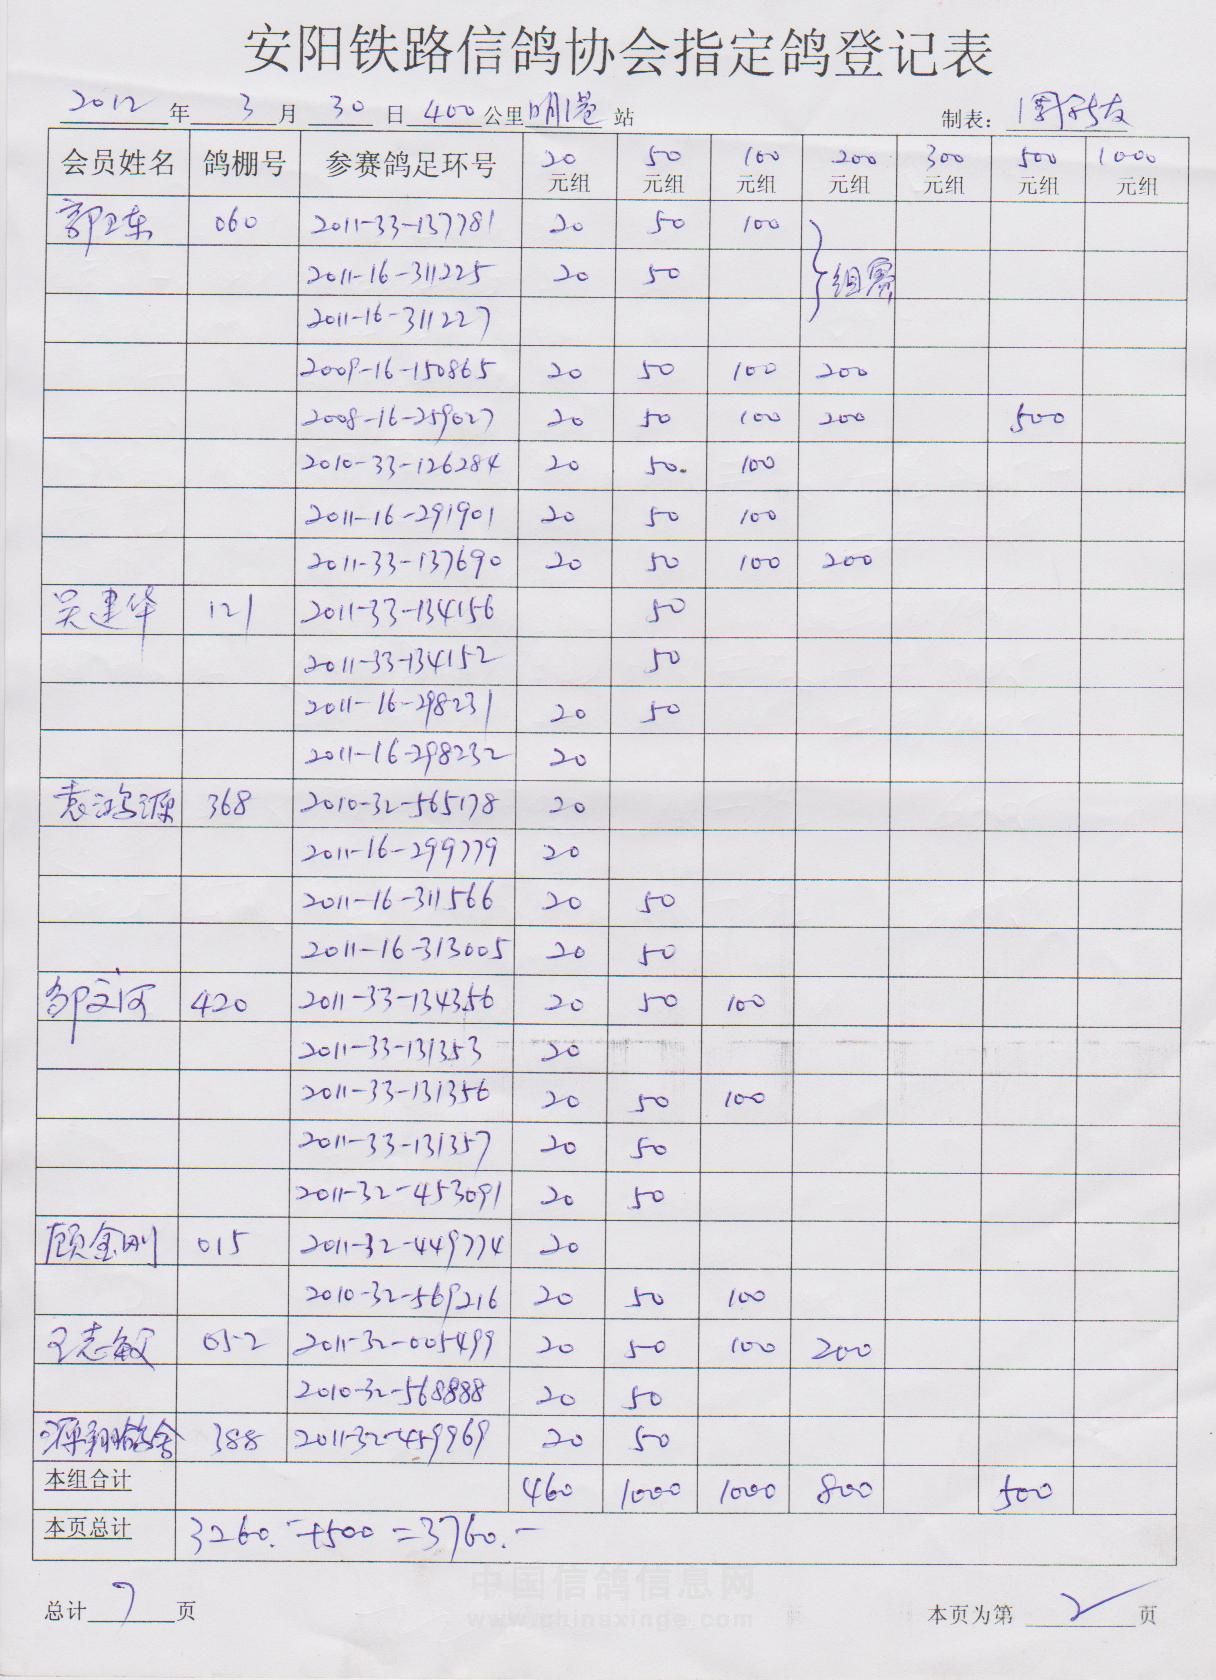 安阳铁路信鸽协会指定鸽登记表
2012 年 3 月 30 日 400 公里 明港 站 制表：
会员姓名 鸽棚号 参赛鸽足环号 20元组 50元组 100元组 200元组 300元组 500元组 1000元组
郭卫东 060 2011-33-137781 20 50 100
2011-16-311225 20 50 组赛
2011-16-311227
2009-16-150865 20 50 100 200
2008-16-259027 20 50 100 200 500
2010-33-126284 20 50. 100
2011-16-291901 20 50 100
2011-33-137690 20 50 100 200
吴建华 121 2011-33-134156 50
2011-33-134152 50
2011-16-298231 20 50
2011-16-298232 20
袁鸿源 368 2010-32-565178 20
2011-16-299779 20
2011-16-311566 20 50
2011-16-313005 20 50
邹文河 420 2011-33-134356 20 50 100
2011-33-131353 20
2011-33-131356 20 50 100
2011-33-131357 20 50
2011-32-453091 20 50
顾金刚 015 2011-32-449774 20
2010-32-569216 20 50 100
王志敏 052 2011-32-005499 20 50 100 200
2010-32-568888 20 50
源翔鸽舍 388 2011-32-459969 20 50
本组合计 460 1000 1000 800 500
本页总计 3260.-+500=3760.-
中国信鸽信息网
www.chinaxinge.com
总计 7 页 本页为第 2 页